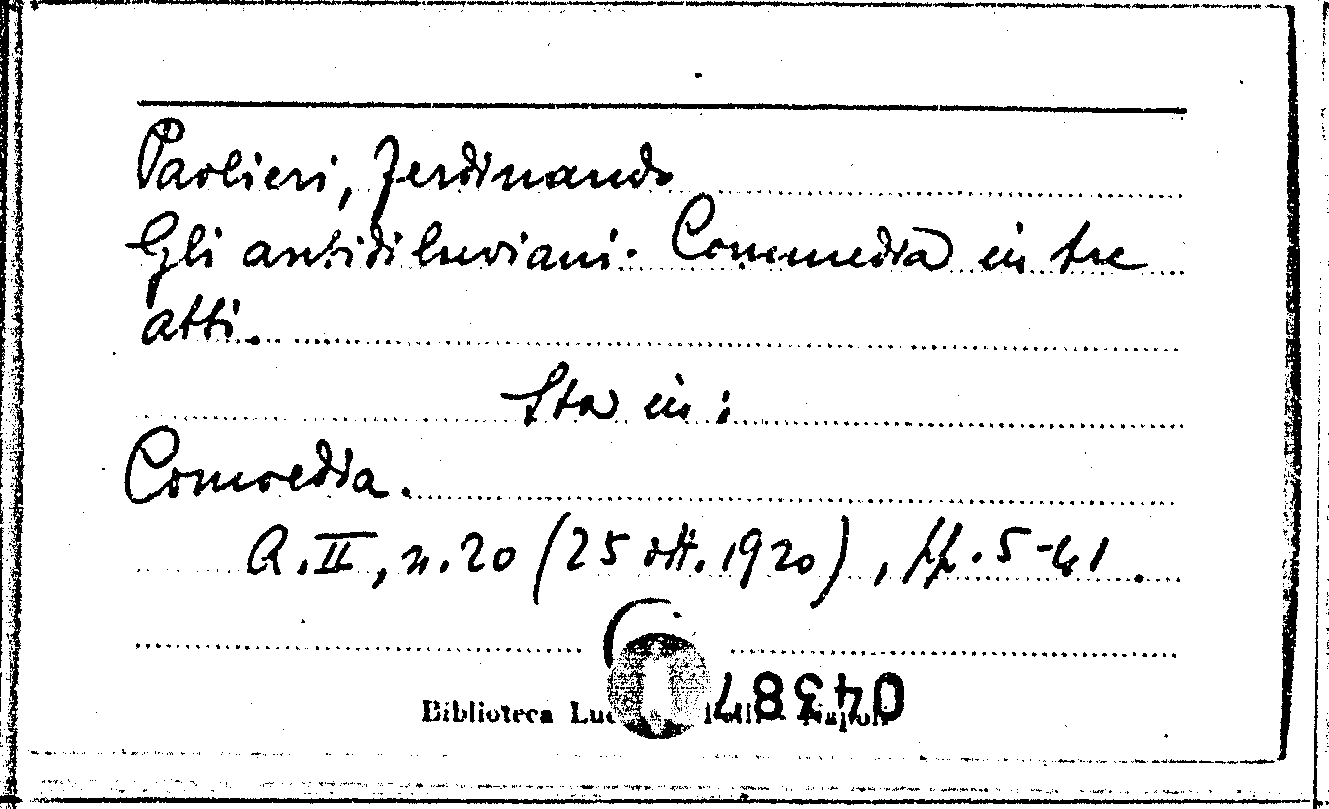 Paolieri, Ferdinando
Gli antidiluviani. Commedia in tre
atti.
Sta in:
Comoedia.
A. II, n. 20 (25 ott. 1920), pp. 5-41.
Biblioteca
04387